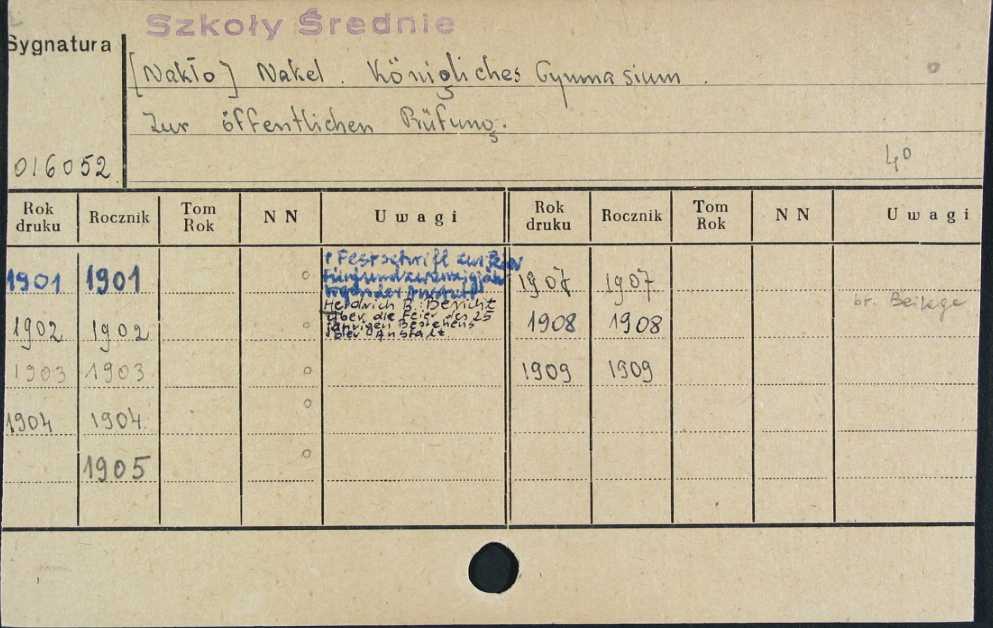 Szkoły Średnie
Sygnatura
[Nakło] Nakel. Königliches Gymnasium.
Zur öffentlichen Prüfung.
016052
4°
Rok druku Rocznik Tom Rok NN Uwagi Rok druku Rocznik Tom Rok NN Uwagi
1901 1901 + Festschrift zur Feier
fünfundzwanzigjäh
der Anstalt
1907 1907
br. Beilage
1902 1902 Heidrich R: Bericht
über die Feier des 25
jährigen Bestehens
der Anstalt.
1908 1908
1903 1903
1909 1909
1904 1904
1905